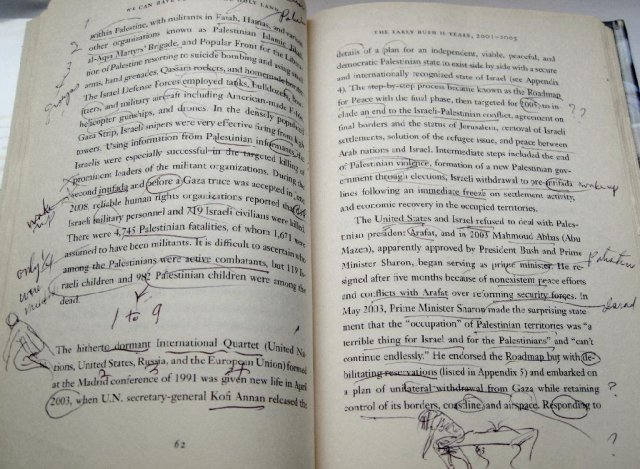 WE CAN HAVE
within Palestine, with militants in Fatah, Hamas, and various
other organizations known as Palestinian Islamic Jihad,
al-Aqsa Martyrs' Brigade, and Popular Front for the Libera-
tion of Palestine resorting to suicide bombing and using small
arms, hand grenades, Qassam rockets, and homemade
The Israel Defense Forces employed tanks, bulldozers,
and military aircraft including American-made
helicopter gunships, and drones. In the densely populated
Gaza Strip, Israeli snipers were very effective firing from high
towers. Using information from Palestinian informants, the
Israelis were especially successful in the targeted killing of
prominent leaders of the militant organizations. During the
second intifada and before a Gaza truce was accepted in
2008, reliable human rights organizations reported that
Israeli military personnel and 719 Israeli civilians were killed.
There were 4,745 Palestinian fatalities, of whom 1,671 were
assumed to have been militants. It is difficult to ascertain who
among the Palestinians were active combatants, but 119 Is-
raeli children and 982 Palestinian children were among the
dead.
1 to 9
The hitherto dormant international Quartet (United Na-
tions, United States, Russia, and the European Union) formed
at the Madrid conference of 1991 was given new life in April
2003, when U.N. secretary-general Kofi Annan released the
62
THE EARLY BUSH II YEARS, 2001–2005
details of a plan for an independent, viable, peaceful, and
democratic Palestinian state to exist side by side with a secure
and internationally recognized state of Israel (see Appendix
4). The step-by-step process became known as the Roadmap
for Peace with the final phase, then targeted for 2005, to in-
clude an end to the Israeli-Palestinian conflict, agreement on
final borders and the status of Jerusalem, removal of Israeli
settlements, solution of the refugee issue, and peace between
Arab nations and Israel. Intermediate steps included the end
of Palestinian violence, formation of a new Palestinian gov-
ernment through elections, Israeli withdrawal to pre-intifada
lines following an immediate freeze on settlement activity,
and economic recovery in the occupied territories.
The United States and Israel refused to deal with Pales-
tinian president Arafat, and in 2003 Mahmoud Abbas (Abu
Mazen), apparently approved by President Bush and Prime
Minister Sharon, began serving as prime minister. He re-
signed after five months because of nonexistent peace efforts
and conflicts with Arafat over reforming security forces. In
May 2003, Prime Minister Sharon made the surprising state-
ment that the "occupation" of Palestinian territories was "a
terrible thing for Israel and for the Palestinians" and "can't
continue endlessly." He endorsed the Roadmap but with de-
bilitating reservations (listed in Appendix 5) and embarked on
a plan of unilateral withdrawal from Gaza while retaining
control of its borders, coastline, and airspace. Responding to